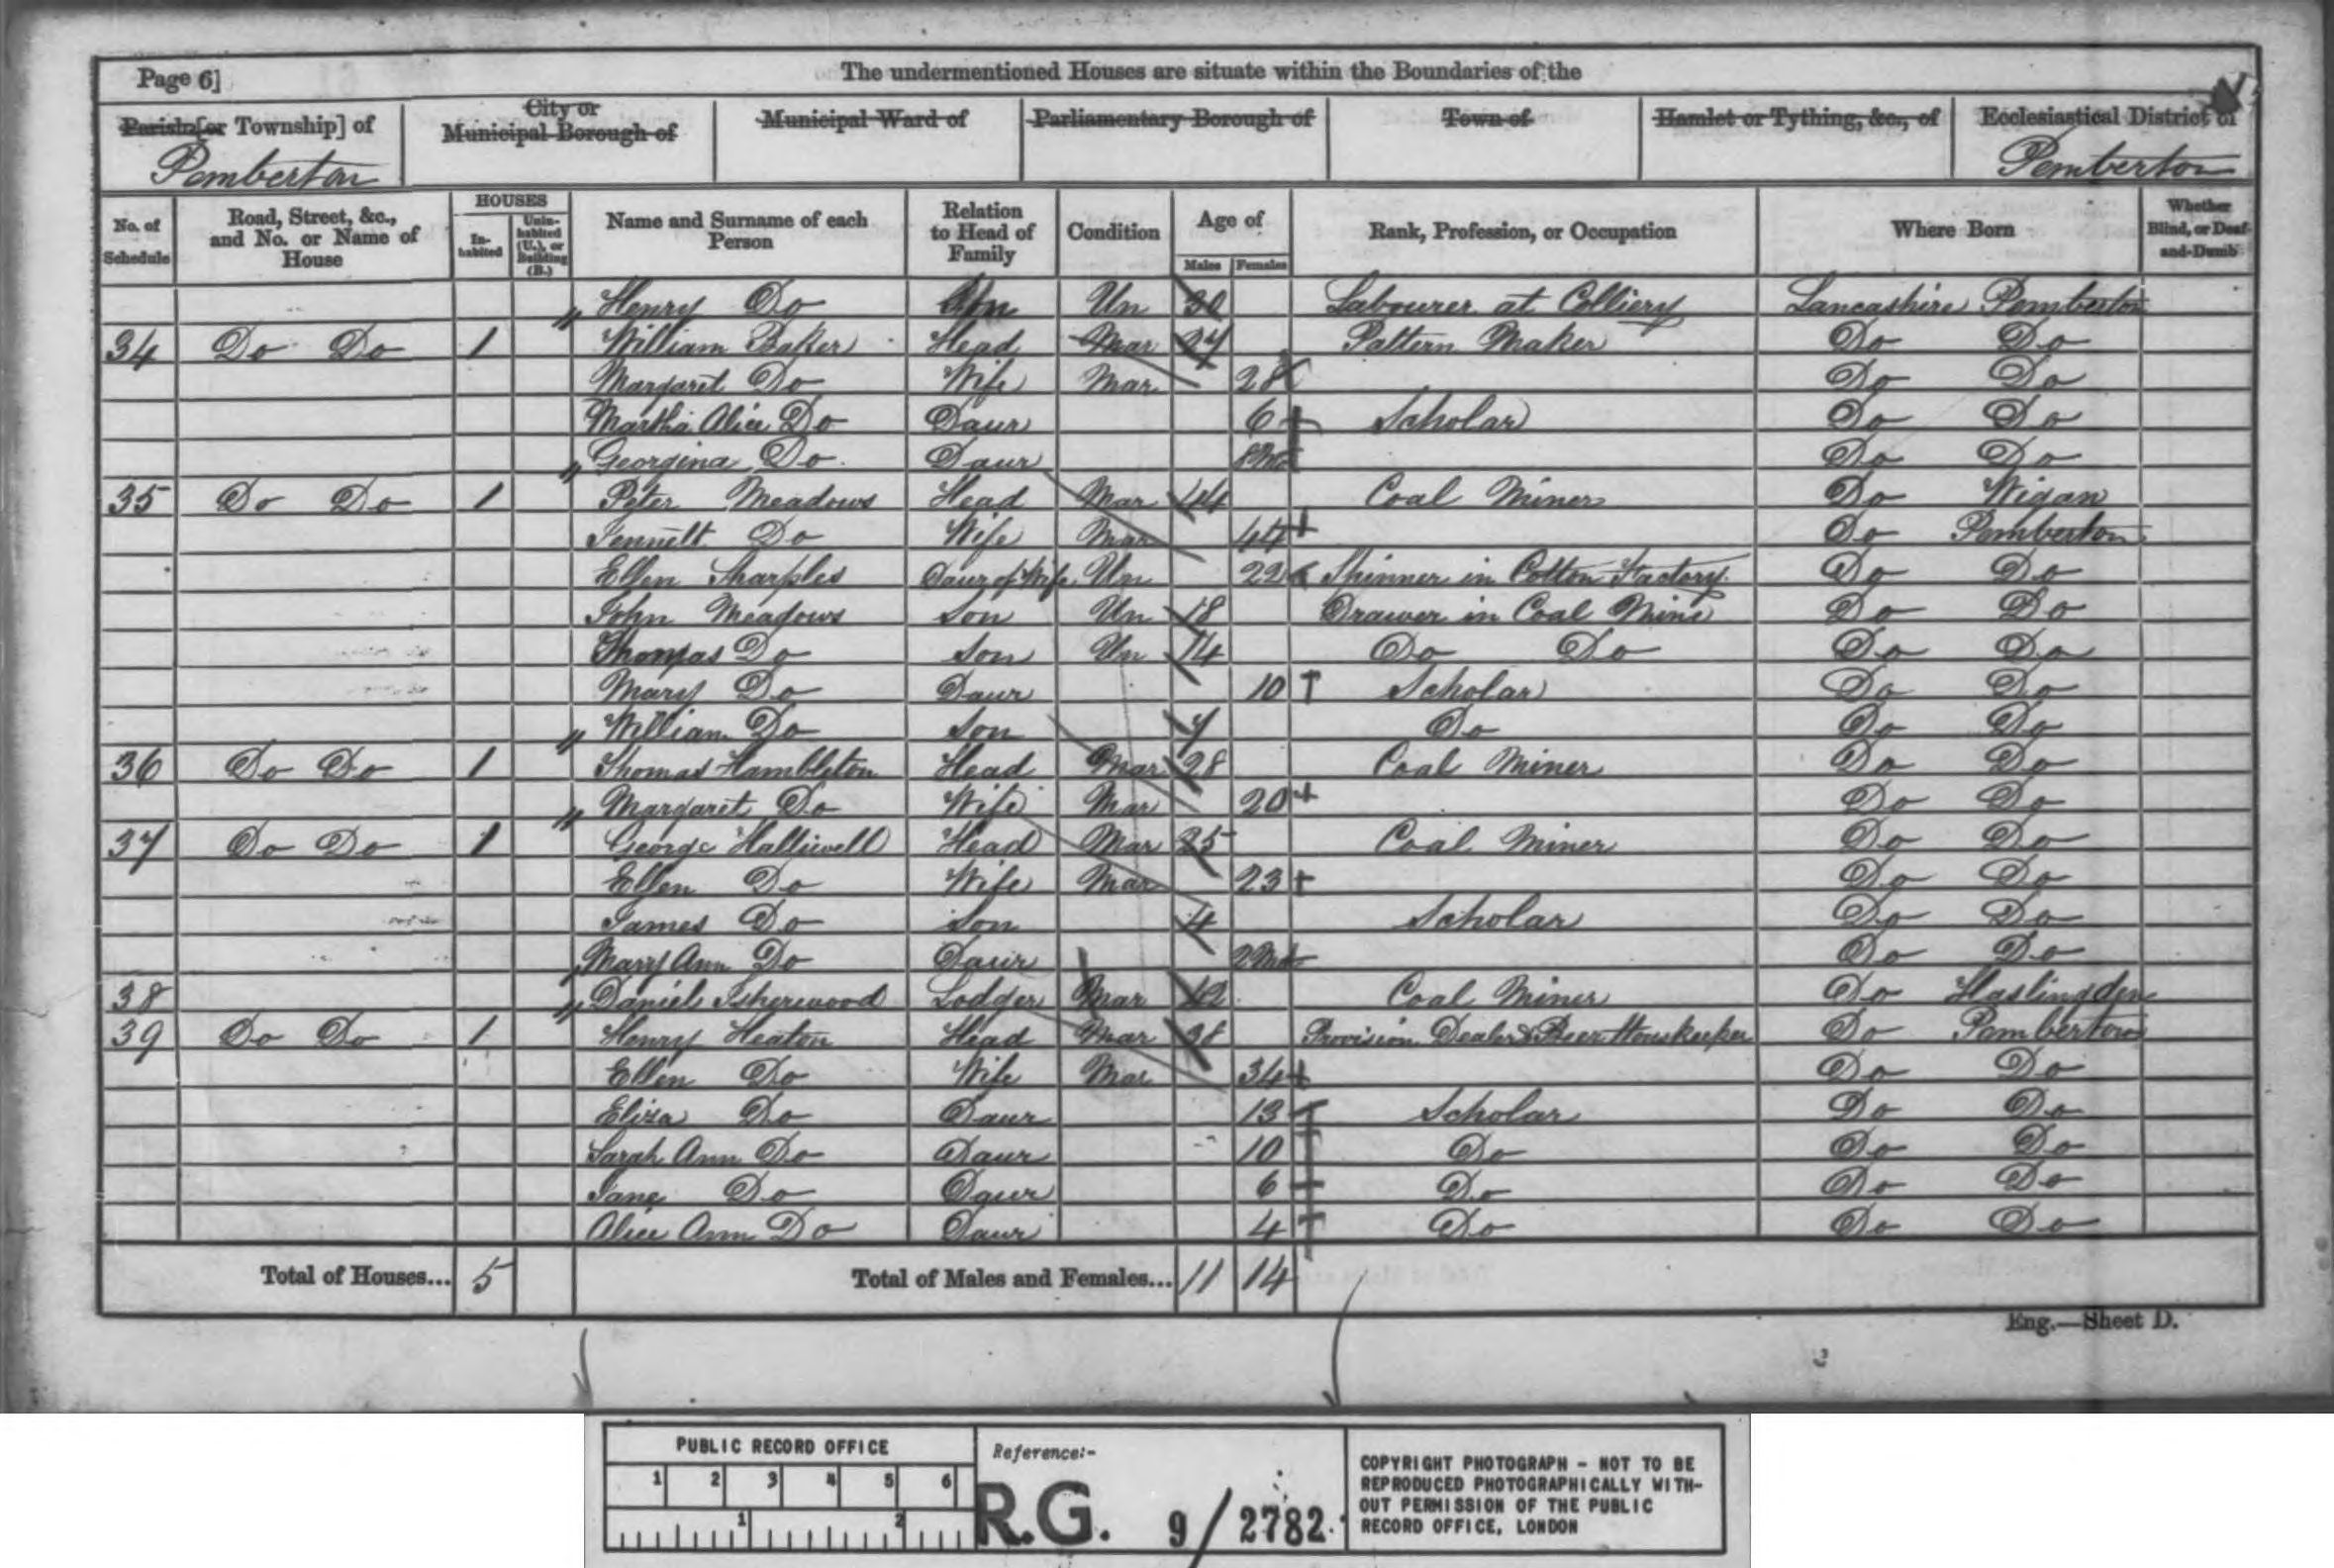 Page 6]
The undermentioned Houses are situate within the Boundaries of the
Parish [or Township] of City or Municipal Borough of Municipal Ward of Parliamentary Borough of Town of Hamlet or Tything, &c., of Ecclesiastical District of
Pemberton Pemberton
No. of Schedule Road, Street, &c., and No. or Name of House HOUSES Inhabited Uninhabited (U.), or Building (B.) Name and Surname of each Person Relation to Head of Family Condition Age of Males Females Rank, Profession, or Occupation Where Born Whether Blind, or Deaf-and-Dumb
Henry Do Un Labourer at Colliery Lancashire Pemberton
34 Do Do 1 William Baker Head Mar Pattern Maker Do Do
Margaret Do Wife Mar 28 Do Do
Martha Alice Do Daur 6 Scholar Do Do
Georgina Do Daur 8Mo Do Do
35 Do Do 1 Peter Meadows Head Mar 44 Coal Miner Do Wigan
Jennett Do Wife Mar 44 Do Pemberton
Ellen Sharples Daur of Wife Un 22 Spinner in Cotton Factory Do Do
John Meadows Son Un 18 Drawer in Coal Mine Do Do
Thomas Do Son Un 14 Do Do Do Do
Mary Do Daur 10 Scholar Do Do
William Do Son 7 Do Do Do
36 Do Do 1 Thomas Hambleton Head Mar 28 Coal Miner Do Do
Margaret Do Wife Mar 20 Do Do
37 Do Do 1 George Halliwell Head Mar 25 Coal Miner Do Do
Ellen Do Wife Mar 23 Do Do
James Do Son 4 Scholar Do Do
Mary Ann Do Daur 2Mo Do Do
38 Daniel Isherwood Lodger Mar 42 Coal Miner Do Haslingden
39 Do Do 1 Henry Heaton Head Mar 38 Provision Dealer & Beer Housekeeper Do Pemberton
Ellen Do Wife Mar 34 Do Do
Eliza Do Daur 13 Scholar Do Do
Sarah Ann Do Daur 10 Do Do Do
Jane Do Daur 6 Do Do Do
Alice Ann Do Daur 4 Do Do Do
Total of Houses... 5 Total of Males and Females... 11 14
Eng.—Sheet D.
PUBLIC RECORD OFFICE
1 2 3 4 5 6
1 2
Reference:-
R.G. 9/2782
COPYRIGHT PHOTOGRAPH - NOT TO BE
REPRODUCED PHOTOGRAPHICALLY WITH-
OUT PERMISSION OF THE PUBLIC
RECORD OFFICE, LONDON